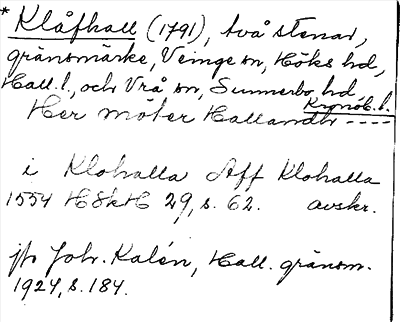 * Klåfhall (1791), två stenar,
gränsmärke, Veinge sn, Höks hd,
Hall. l., och Vrå sn, Sunnerbo hd
Kronob. l.
Her möter Hallandh ----
i Klohalla Aff Klohalla
1554 HSkH 29, s. 62. avskr.
jfr Joh. Kalén, Hall. gränsm.
1924, s. 184.